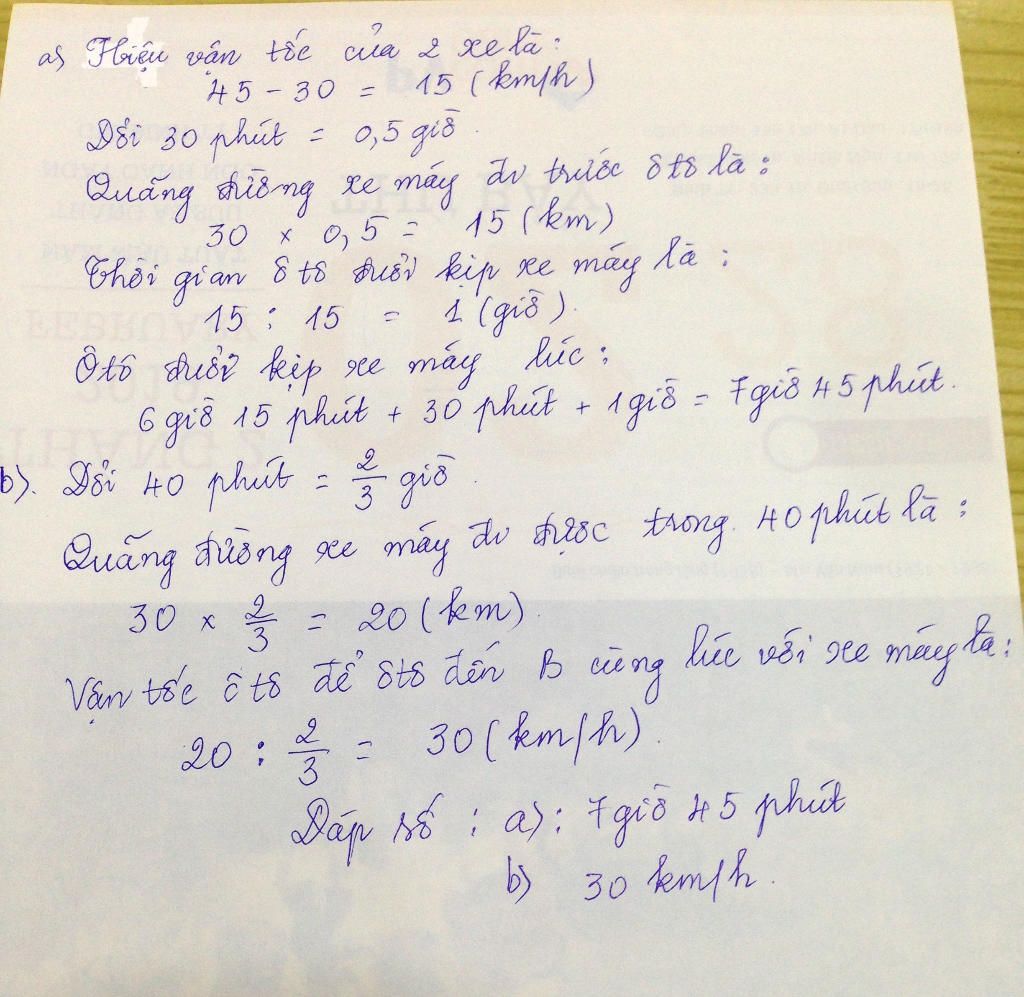 a) Hiệu vận tốc của 2 xe là:
45 - 30 = 15 (km/h)
Đổi 30 phút = 0,5 giờ.
Quãng đường xe máy đi trước ôtô là:
30 × 0,5 = 15 (km)
Thời gian ôtô đuổi kịp xe máy là:
15 : 15 = 1 (giờ).
Ôtô đuổi kịp xe máy lúc:
6 giờ 15 phút + 30 phút + 1 giờ = 7 giờ 45 phút.
b). Đổi 40 phút = 2/3 giờ.
Quãng đường xe máy đi được trong 40 phút là:
30 × 2/3 = 20 (km).
Vận tốc ôtô để ôtô đến B cùng lúc với xe máy là:
20 : 2/3 = 30 (km/h).
Đáp số : a): 7 giờ 45 phút
b) 30 km/h.